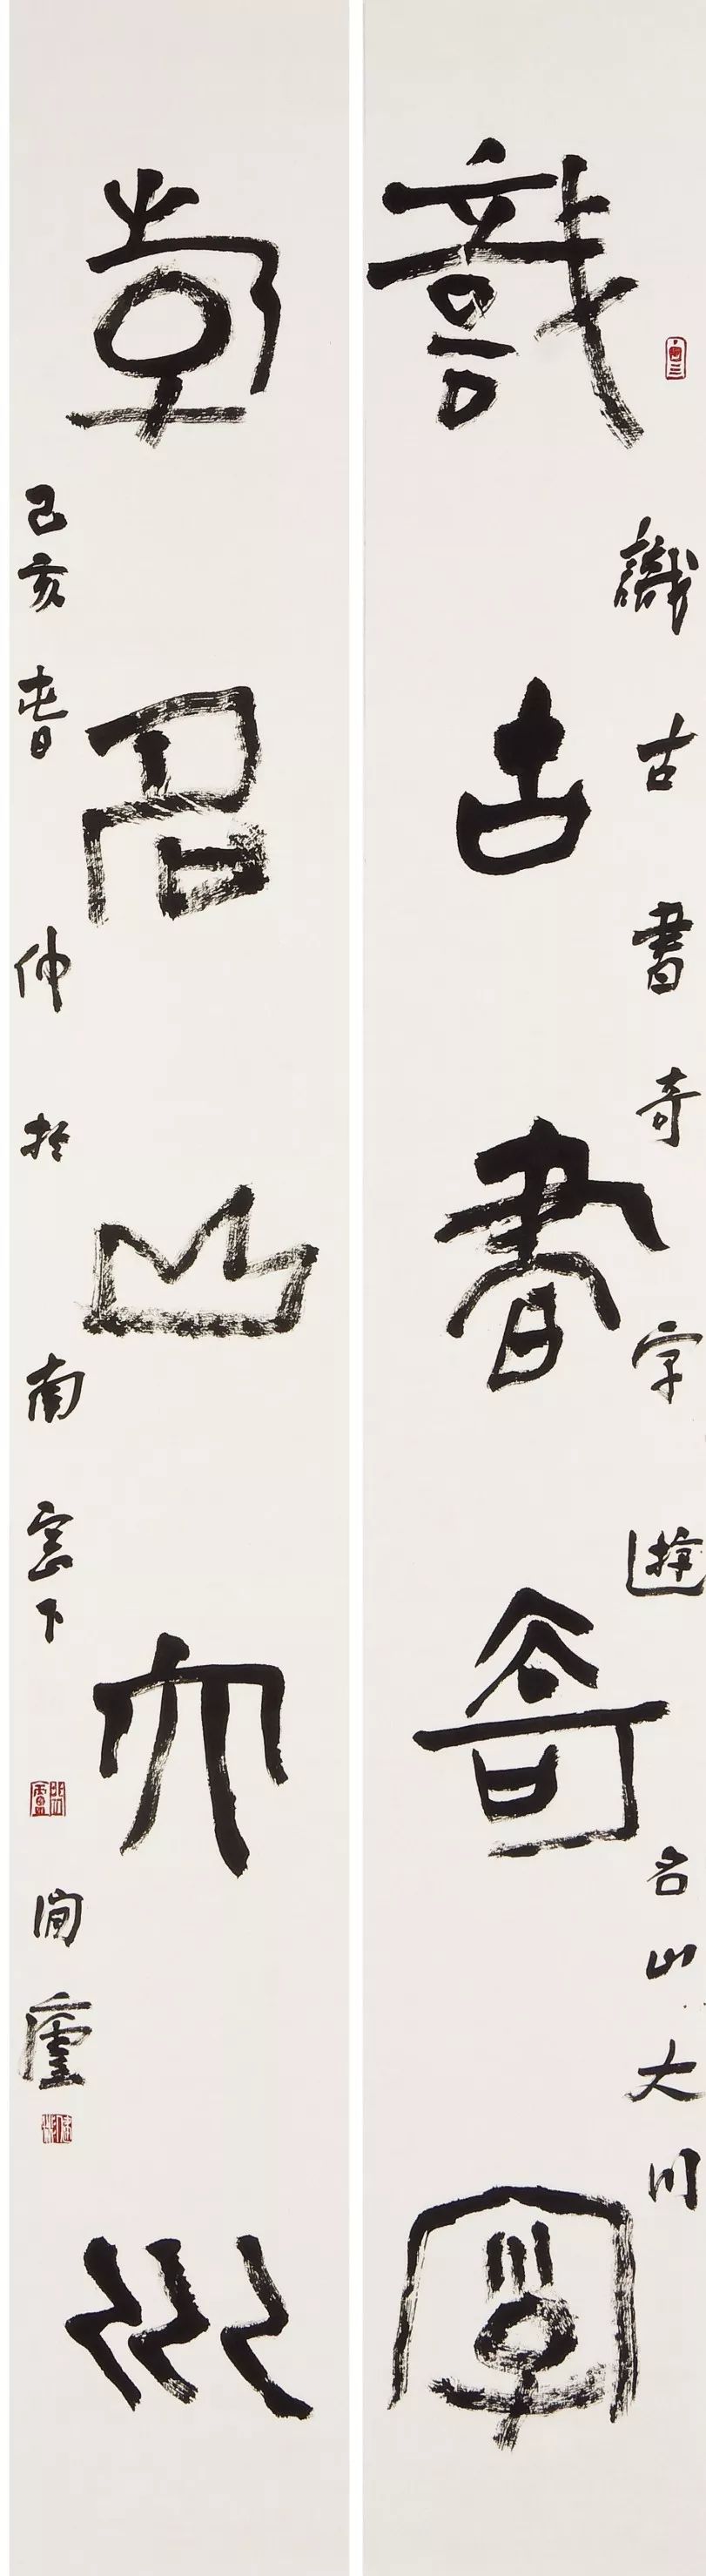 識古書奇字
識古書奇字遊名山大川
遊名山大川
己亥春仲於南窗下閒廬